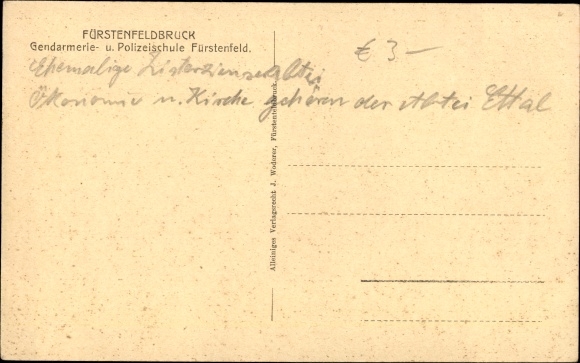 FÜRSTENFELDBRUCK
Gendarmerie- u. Polizeischule Fürstenfeld.
€ 3.-
Ehemalige Zisterzienserabtei
Ökonomie u. Kirche gehören der Abtei Ettal
Alleiniges Verlagsrecht J. Woderer, Fürstenfeldbruck.